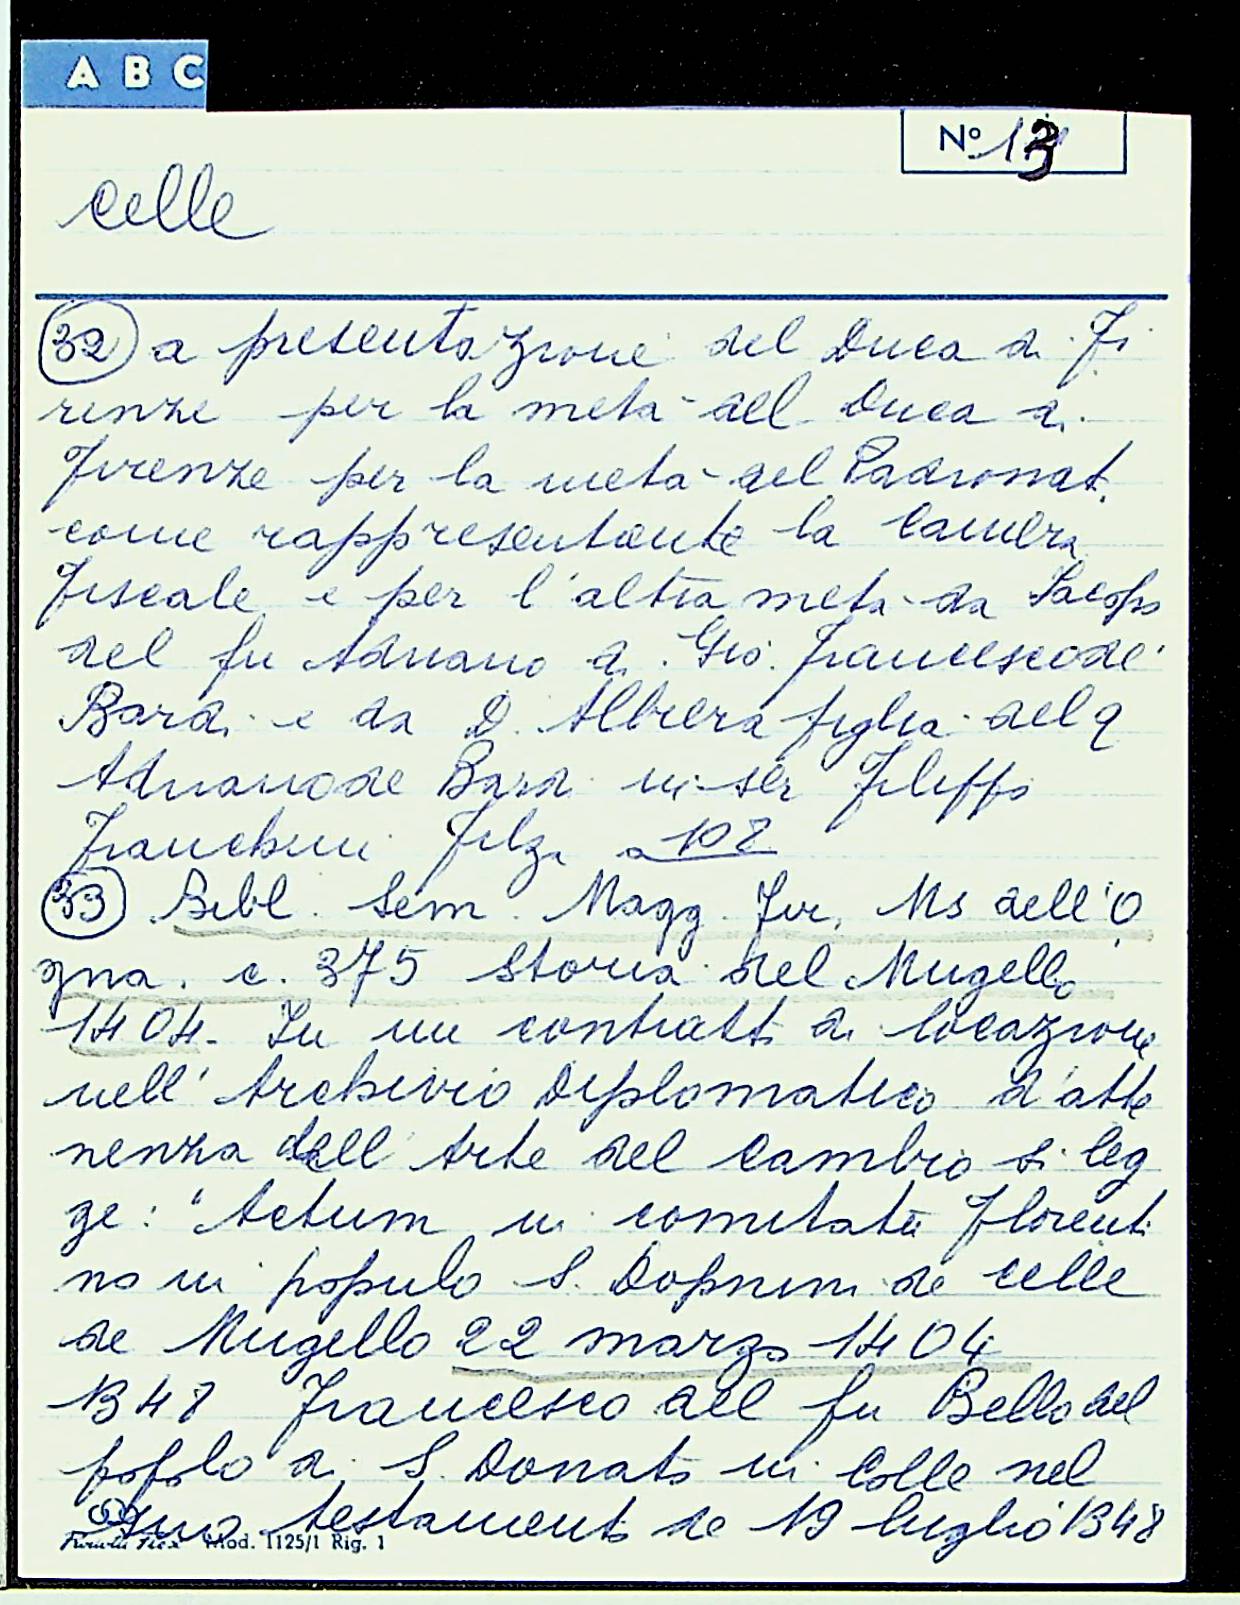 A B C
N° 13
Celle
32 a presentazione del Duca di Fi
renze per la metà del Duca di
Firenze per la metà del Padronat.
come rappresentante la Camera
Fiscale e per l'altra metà da Jacopo
del fu Adriano di Gio. Francesco de'
Bardi e da D. Albiera figlia del q
Adriano de Bardi in ser Filippo
Franchini Filza a 108
33 Bibl. Sem. Magg. Fir. Ms dell'O
gna. c. 375 Storia del Mugello
1404. In un contratto di locazione
nell'Archivio Diplomatico d'atte
nenza dell'Arte del Cambio si leg
ge: "Actum in comitatu Florenti
no in populo S. Dopnini de Celle
de Mugello 22 marzo 1404
1348 Francesco del fu Bello del
popolo di S. Donato in Colle nel
suo testamento de 19 luglio 1348
Mod. 1125/1 Rig. 1